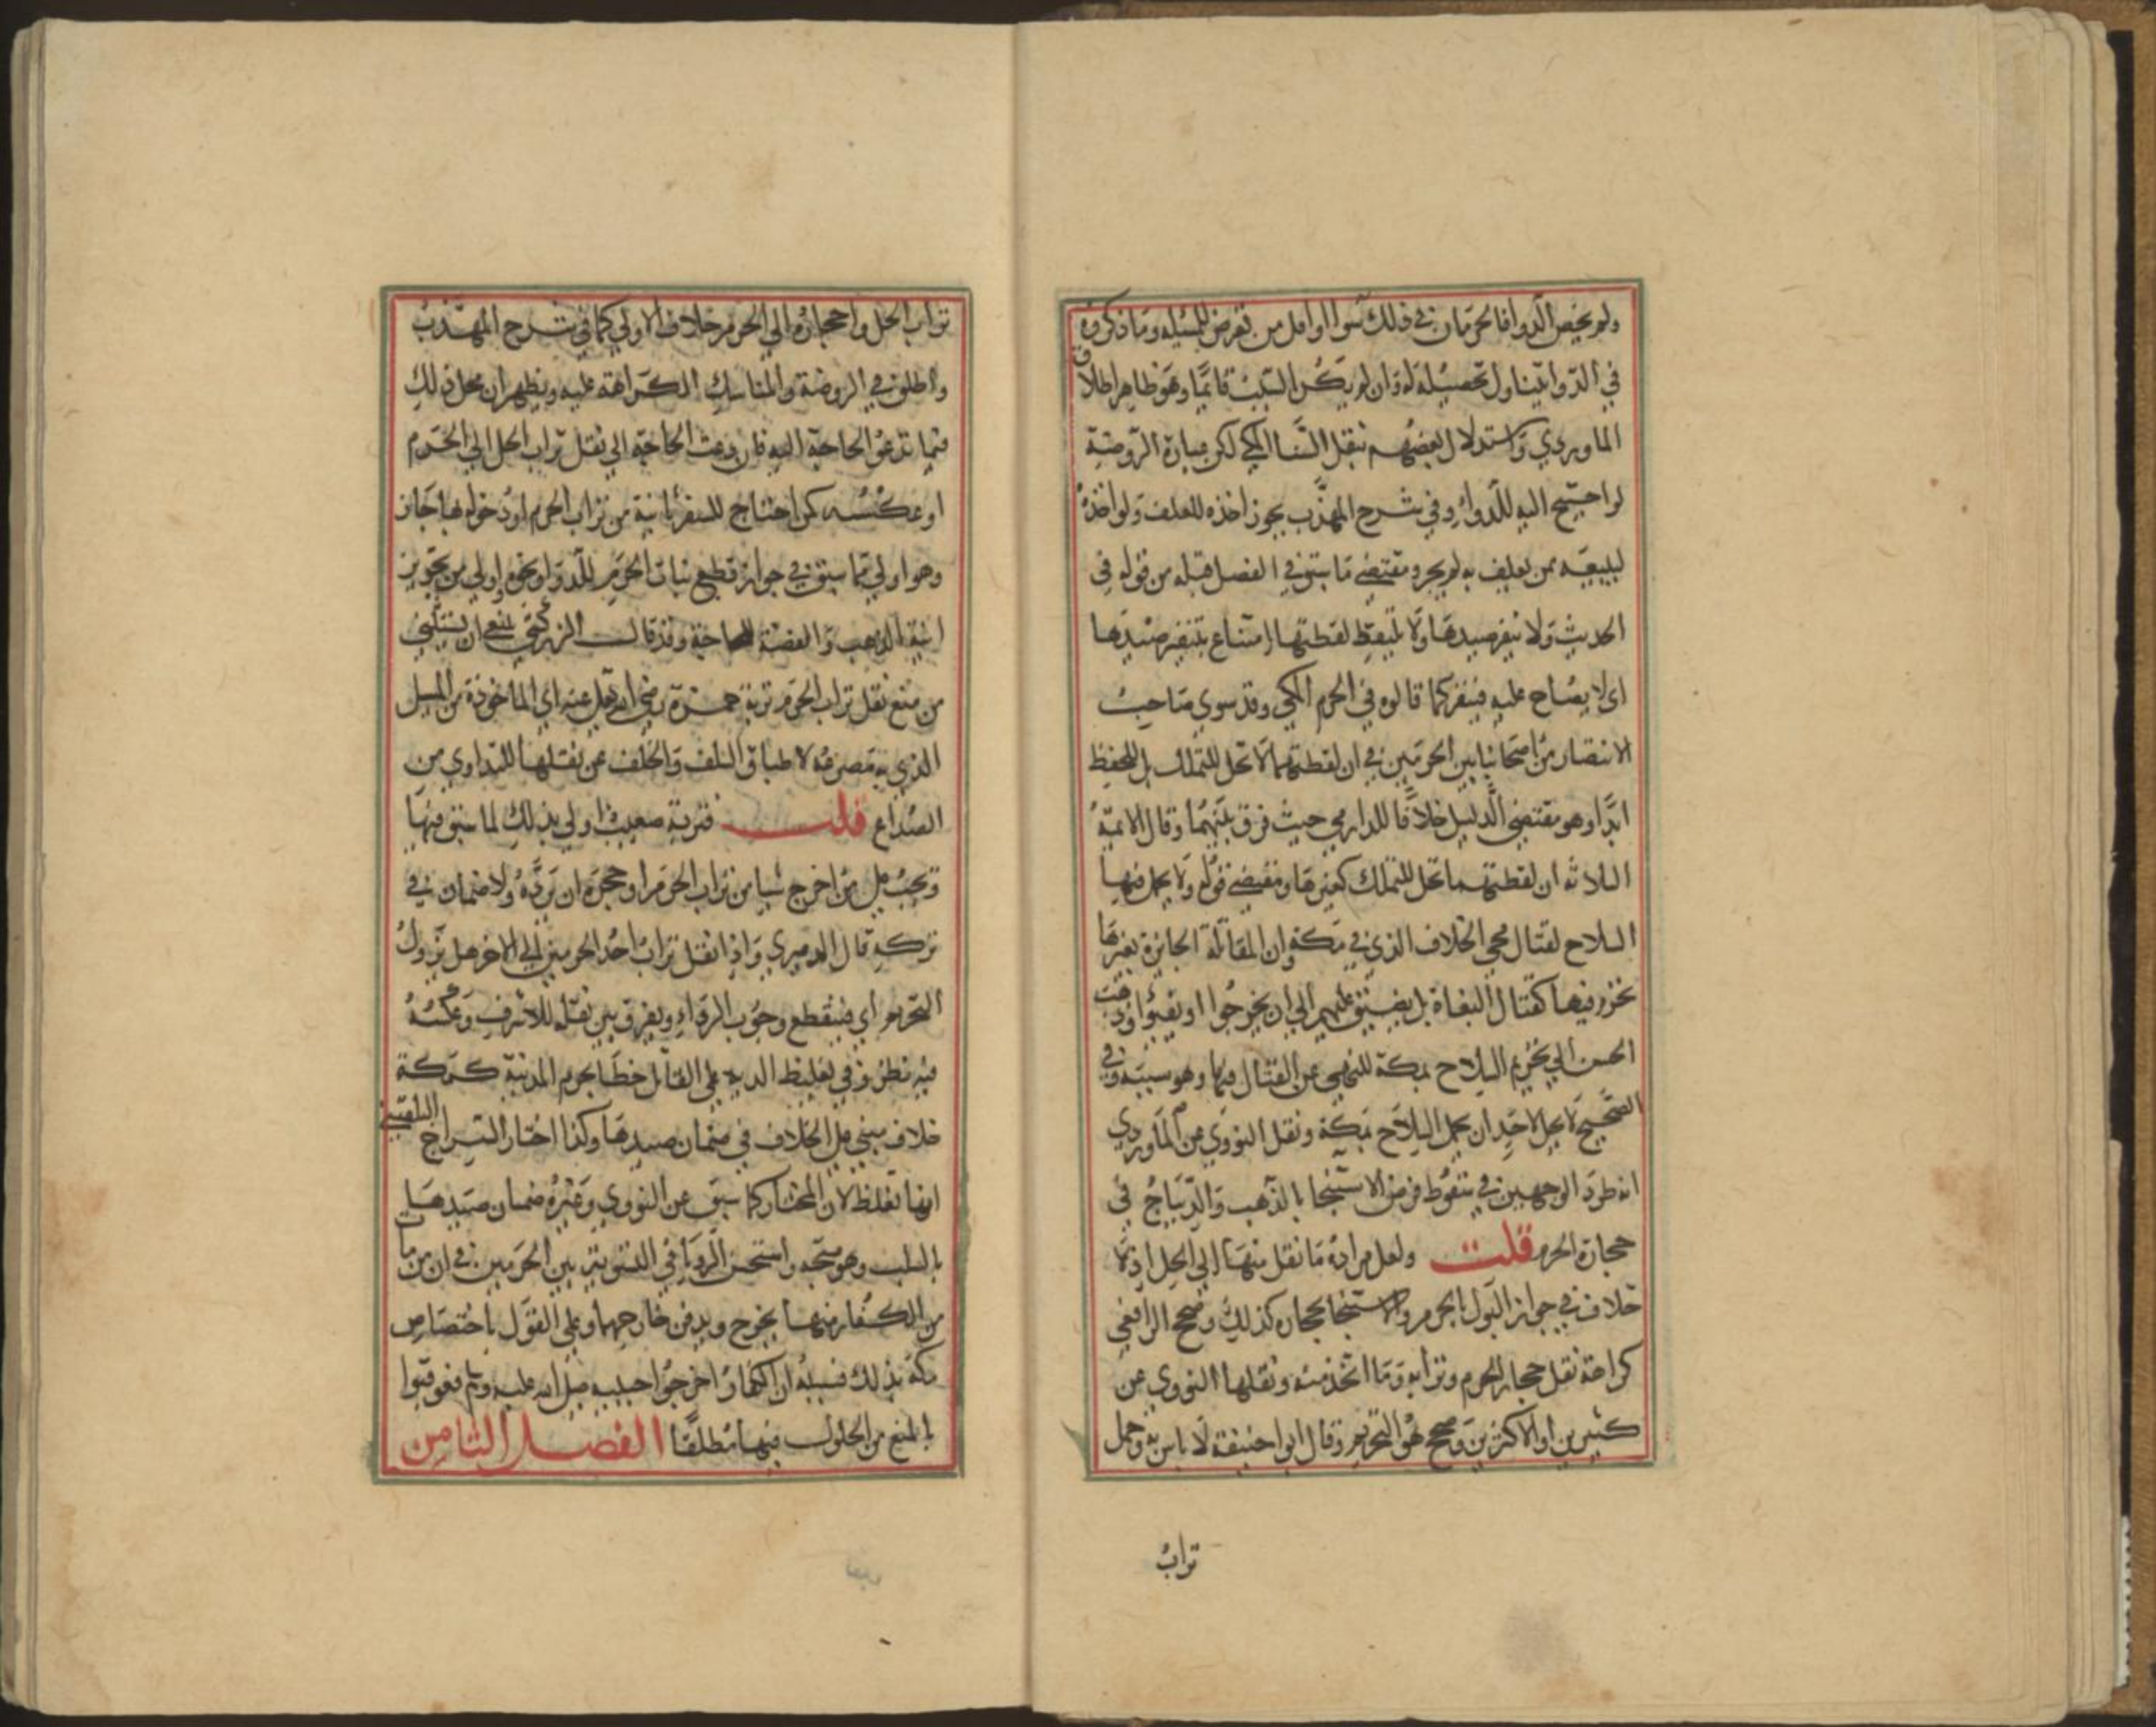 ولم يخص الدوا فالحرمان في ذلك سوا اوامل من تعرض للمسئلة وما ذكروه
في الدوا يتناول تحصيله له وان لم يكن السبب قايما وهو ظاهر اطلاق
الماوردي واستدلال بعضهم بنقل السنا المكي لكن عبارة الروضة
لو احتيج اليه للدواء وفي شرح المهذب يجوز اخذه للعلف ولو اخذه
لبيعه ممن يعلف به لم يجز ومقتضى ما سبق في الفصل قبله من قوله في
الحديث ولا ينفر صيدها ولا يلتقط لقطتها امتناع تنفير صيدها
اي لا يصاح عليه فينفر كما قالوه في الحرم المكي وقد سوي صاحب
الانتصار من اصحابنا بين الحرمين في ان لقطتهما لا تحل للتملك بل للحفظ
ابدا وهو مقتضى الدليل خلافا للدارمي حيث فرق بينهما وقال الايمة
الثلاثه ان لقطتهما تحل للتملك كغيرها ومقتضى قوله ولا يحمل فيها
السلاح لقتال مجي الخلاف الذي في مكة وان المقاتلة الجايزة بغيرها
تحرم فيها كقتال البغاة بل يضيق عليهم الي ان يخرجوا او يفيؤا وذهب
الحسن الي تحريم السلاح بمكة للنهي عن القتال فيها وهو سببه وفي
الصحيح لا يحل لاحد ان يحمل السلاح بمكة ونقل النووي عن الماوردي
انه طرد الوجهين في سقوط فرض الاستنجا بالذهب والديباج في
حجارة الحرم قلت ولعل مراده ما نقل منها الي الحل اذ لا
خلاف في جواز البول بالحرم والاستنجا بحجاره كذلك وصحح الرافعي
كراهة نقل حجار الحرم وترابه وما اتخذ منه ونقلها النووي عن
كثيرين او الاكثرين وصحح هو التحريم وقال ابو احنيفة لا باس به وحمل
تراب
تراب الحل واحجاره الي الحرم خلاف الاولي كما في شرح المهذب
واطلق في الروضة والمناسك الكراهة عليه ويظهر ان محل ذلك
فيما تدعو الحاجة اليه فان دعت الحاجة الي نقل تراب الحل الي الحرم
او عكسه كمن احتاج للسفر بانية من تراب الحرم او دخوله بها جاز
وهو اولي مما سبق في جواز قطع نبات الحرم للدوا ونحوه اولي من تجويز
انية الذهب والفضة للحاجة وقد قال الزركشي ينبغي ان يستثني
من منع نقل تراب الحرم تربة حمزة رضي الله تعالي عنه اي الماخوذة من المسيل
الذي به مصرعه لاطباق السلف والخلف عن نقلها للتداوي من
الصداع قلت فتربة صعيب اولي بذلك لما سبق فيها
ويجب على من اخرج شيا من تراب الحرم او حجره ان يرده ولا ضمان في
تركه قال الدميري واذا نقل تراب احد الحرمين الي الاخر هل يزول
التحريم اي فينقطع وجوب الرد او يفرق بين نقله للاشرف وعكسه
فيه نظر وفي تغليظ الدية علي القاتل خطا بحرم المدينة كمكة
خلاف مبني على الخلاف في ضمان صيدها وكذا اختار السراج البلقيني
انها تغلظ لان المختار كما سبق عن النووي وغيره ضمان صيدها
بالسلب وهو متجه واستحسن الروياني التسوية بين الحرمين في ان من مات
من الكفار فيهما يخرج ويدفن خارجهما وعلي القول باختصاص
مكة بذلك فسببه ان الكفار اخرجوا حبيبه صلى الله عليه وسلم فعوقبوا
بالمنع من الحلول فيها مطلقا الفصل الثامن